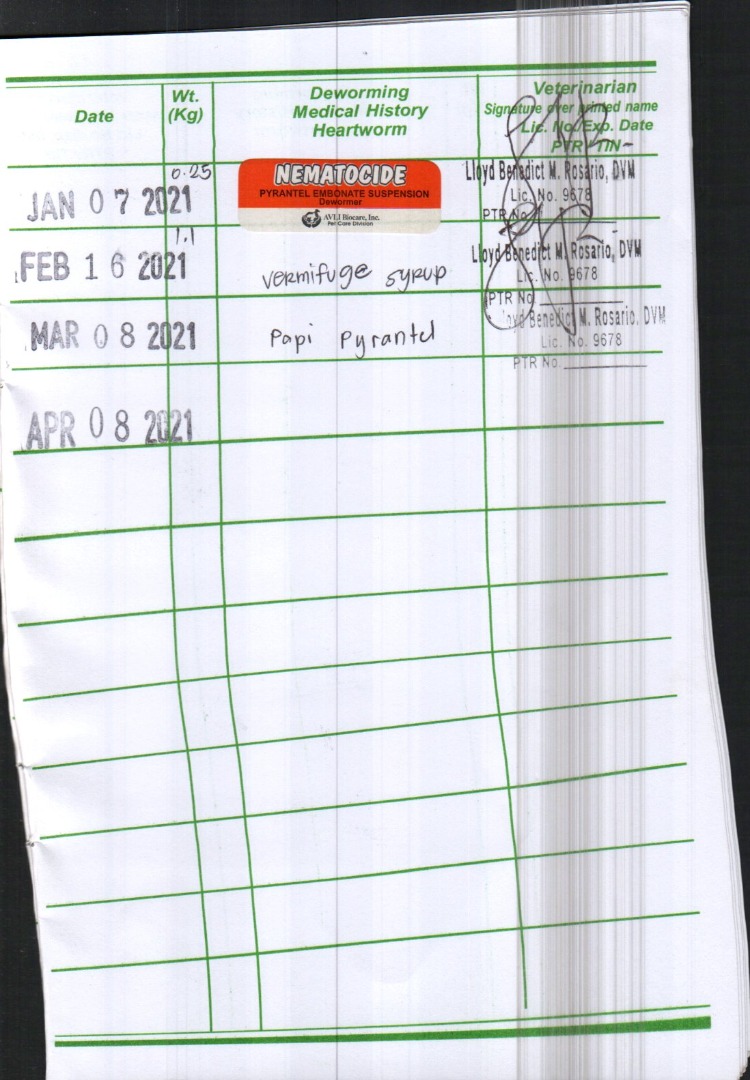 Date
Wt.
(Kg)
Deworming
Medical History
Heartworm
Veterinarian
Signature over printed name
Lic. No/Exp. Date
PTR TIN
JAN 07 2021
0.25
NEMATOCIDE
PYRANTEL EMBONATE SUSPENSION
Dewormer
AVLI Biocare, Inc.
Pet Care Division
Lloyd Benedict M. Rosario, DVM
Lic. No. 9678
PTR No.
FEB 16 2021
1.1
vermifuge syrup
Lloyd Benedict M. Rosario, DVM
Lic. No. 9678
PTR No.
MAR 08 2021
Papi Pyrantel
Lloyd Benedict M. Rosario, DVM
Lic. No. 9678
PTR No.
APR 08 2021